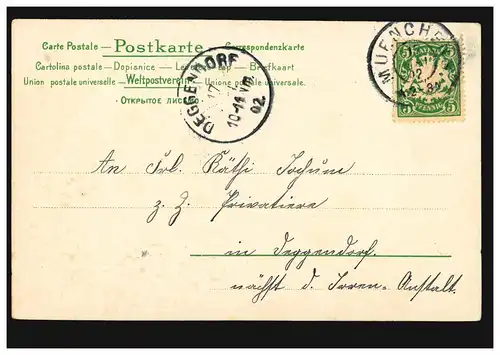 Carte Postale — Postkarte — Correspondenzkarte
Cartolina postale – Dopisnice – Briefkaart
Union postale universelle – Weltpostverein – Unione postale universale.
ОТКРЫТОЕ
DEGGENDORF
10-11 Vm.
02.
MUENCHEN
5
PFENNIG
An Frl. Käthi Jochum
z. Z. Privatiere
in Deggendorf.
nächst d. Irren-Anstalt.